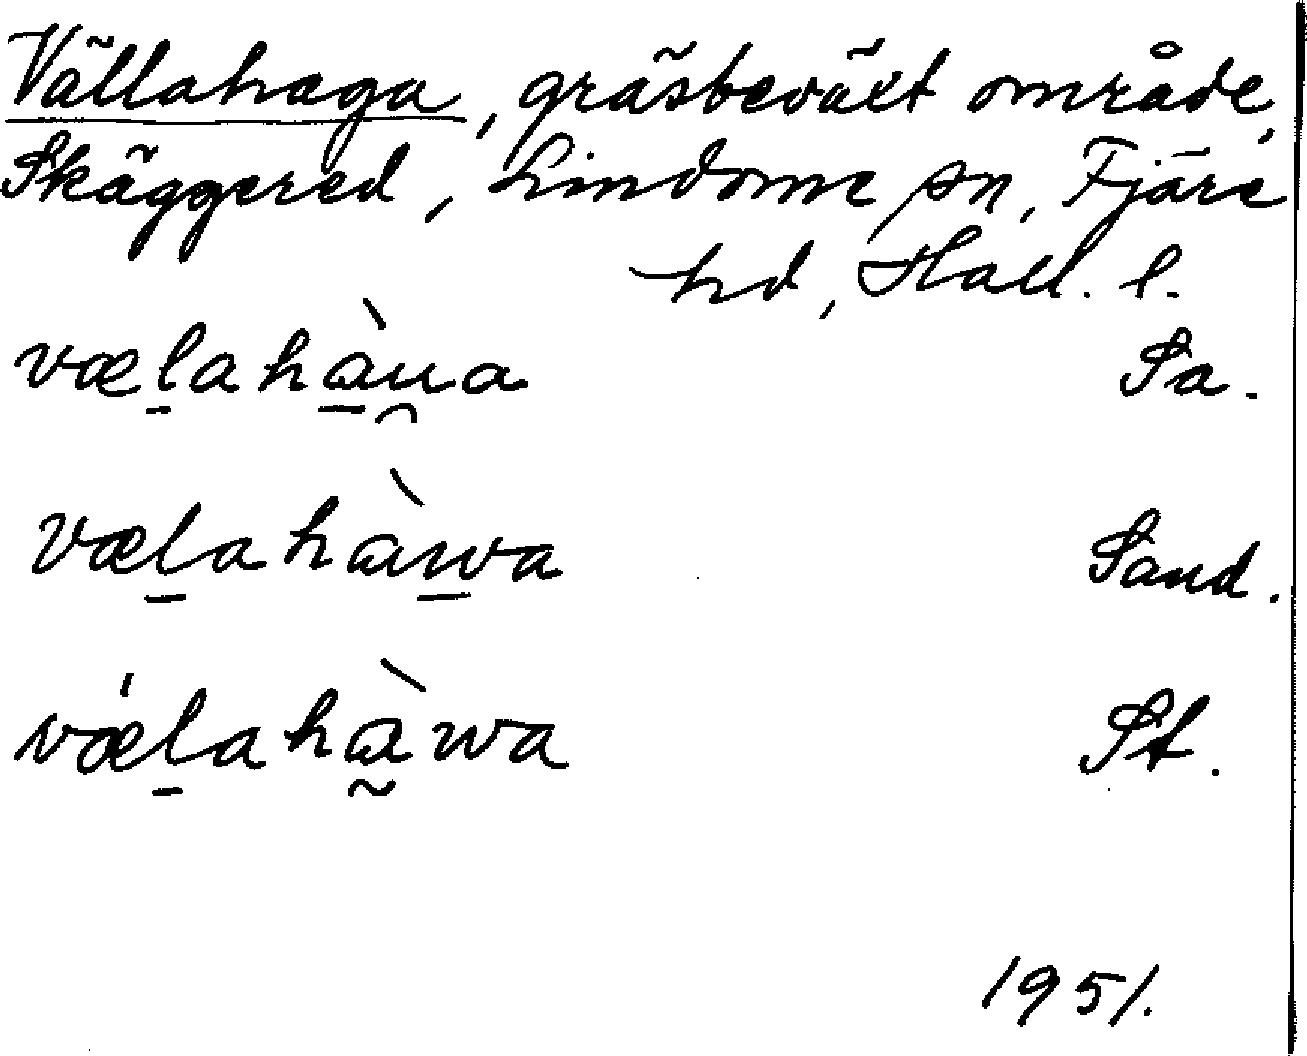 Vällahaga, gräsbeväxt område,
Skäggered, Lindome sn, Fjäre
hd, Hall. l.
væl̠ahà̠u̯a Sa.
væl̠ahàw̠a Sand.
vǽl̠ahà̰wa St.
1951.